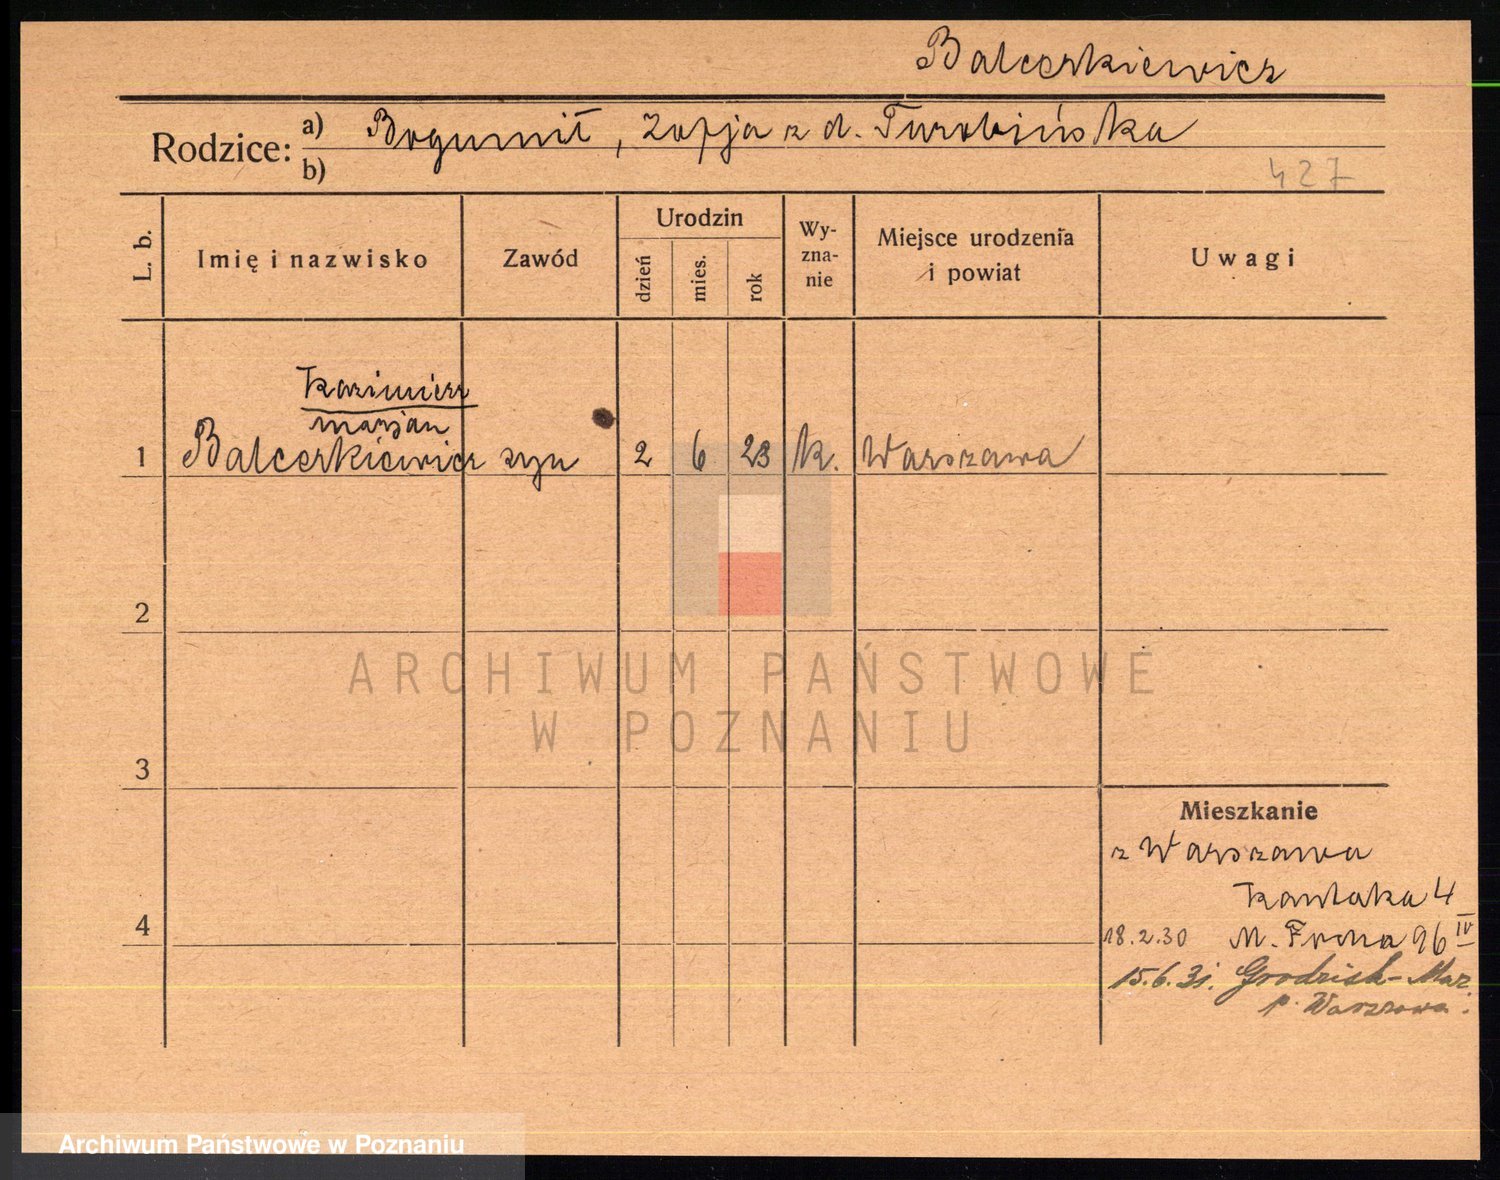 Balcerkiewicz
Rodzice: a) Bogumił, Zofja z d. Turobińska
b)
427
L. b.
Imię i nazwisko
Zawód
Urodzin
dzień
mies.
rok
Wy-
zna-
nie
Miejsce urodzenia
i powiat
Uwagi
Kazimierz
Marjan
1 Balcerkiewicz syn 2 6 23 k. Warszawa
2
ARCHIWUM PAŃSTWOWE
W POZNANIU
3
Mieszkanie
z Warszawa
Kantaka 4
4
18.2.30 M. Focha 96 IV
15.6.31. Grodzisk-Maz.
p. Warszawa.
Archiwum Państwowe w Poznaniu